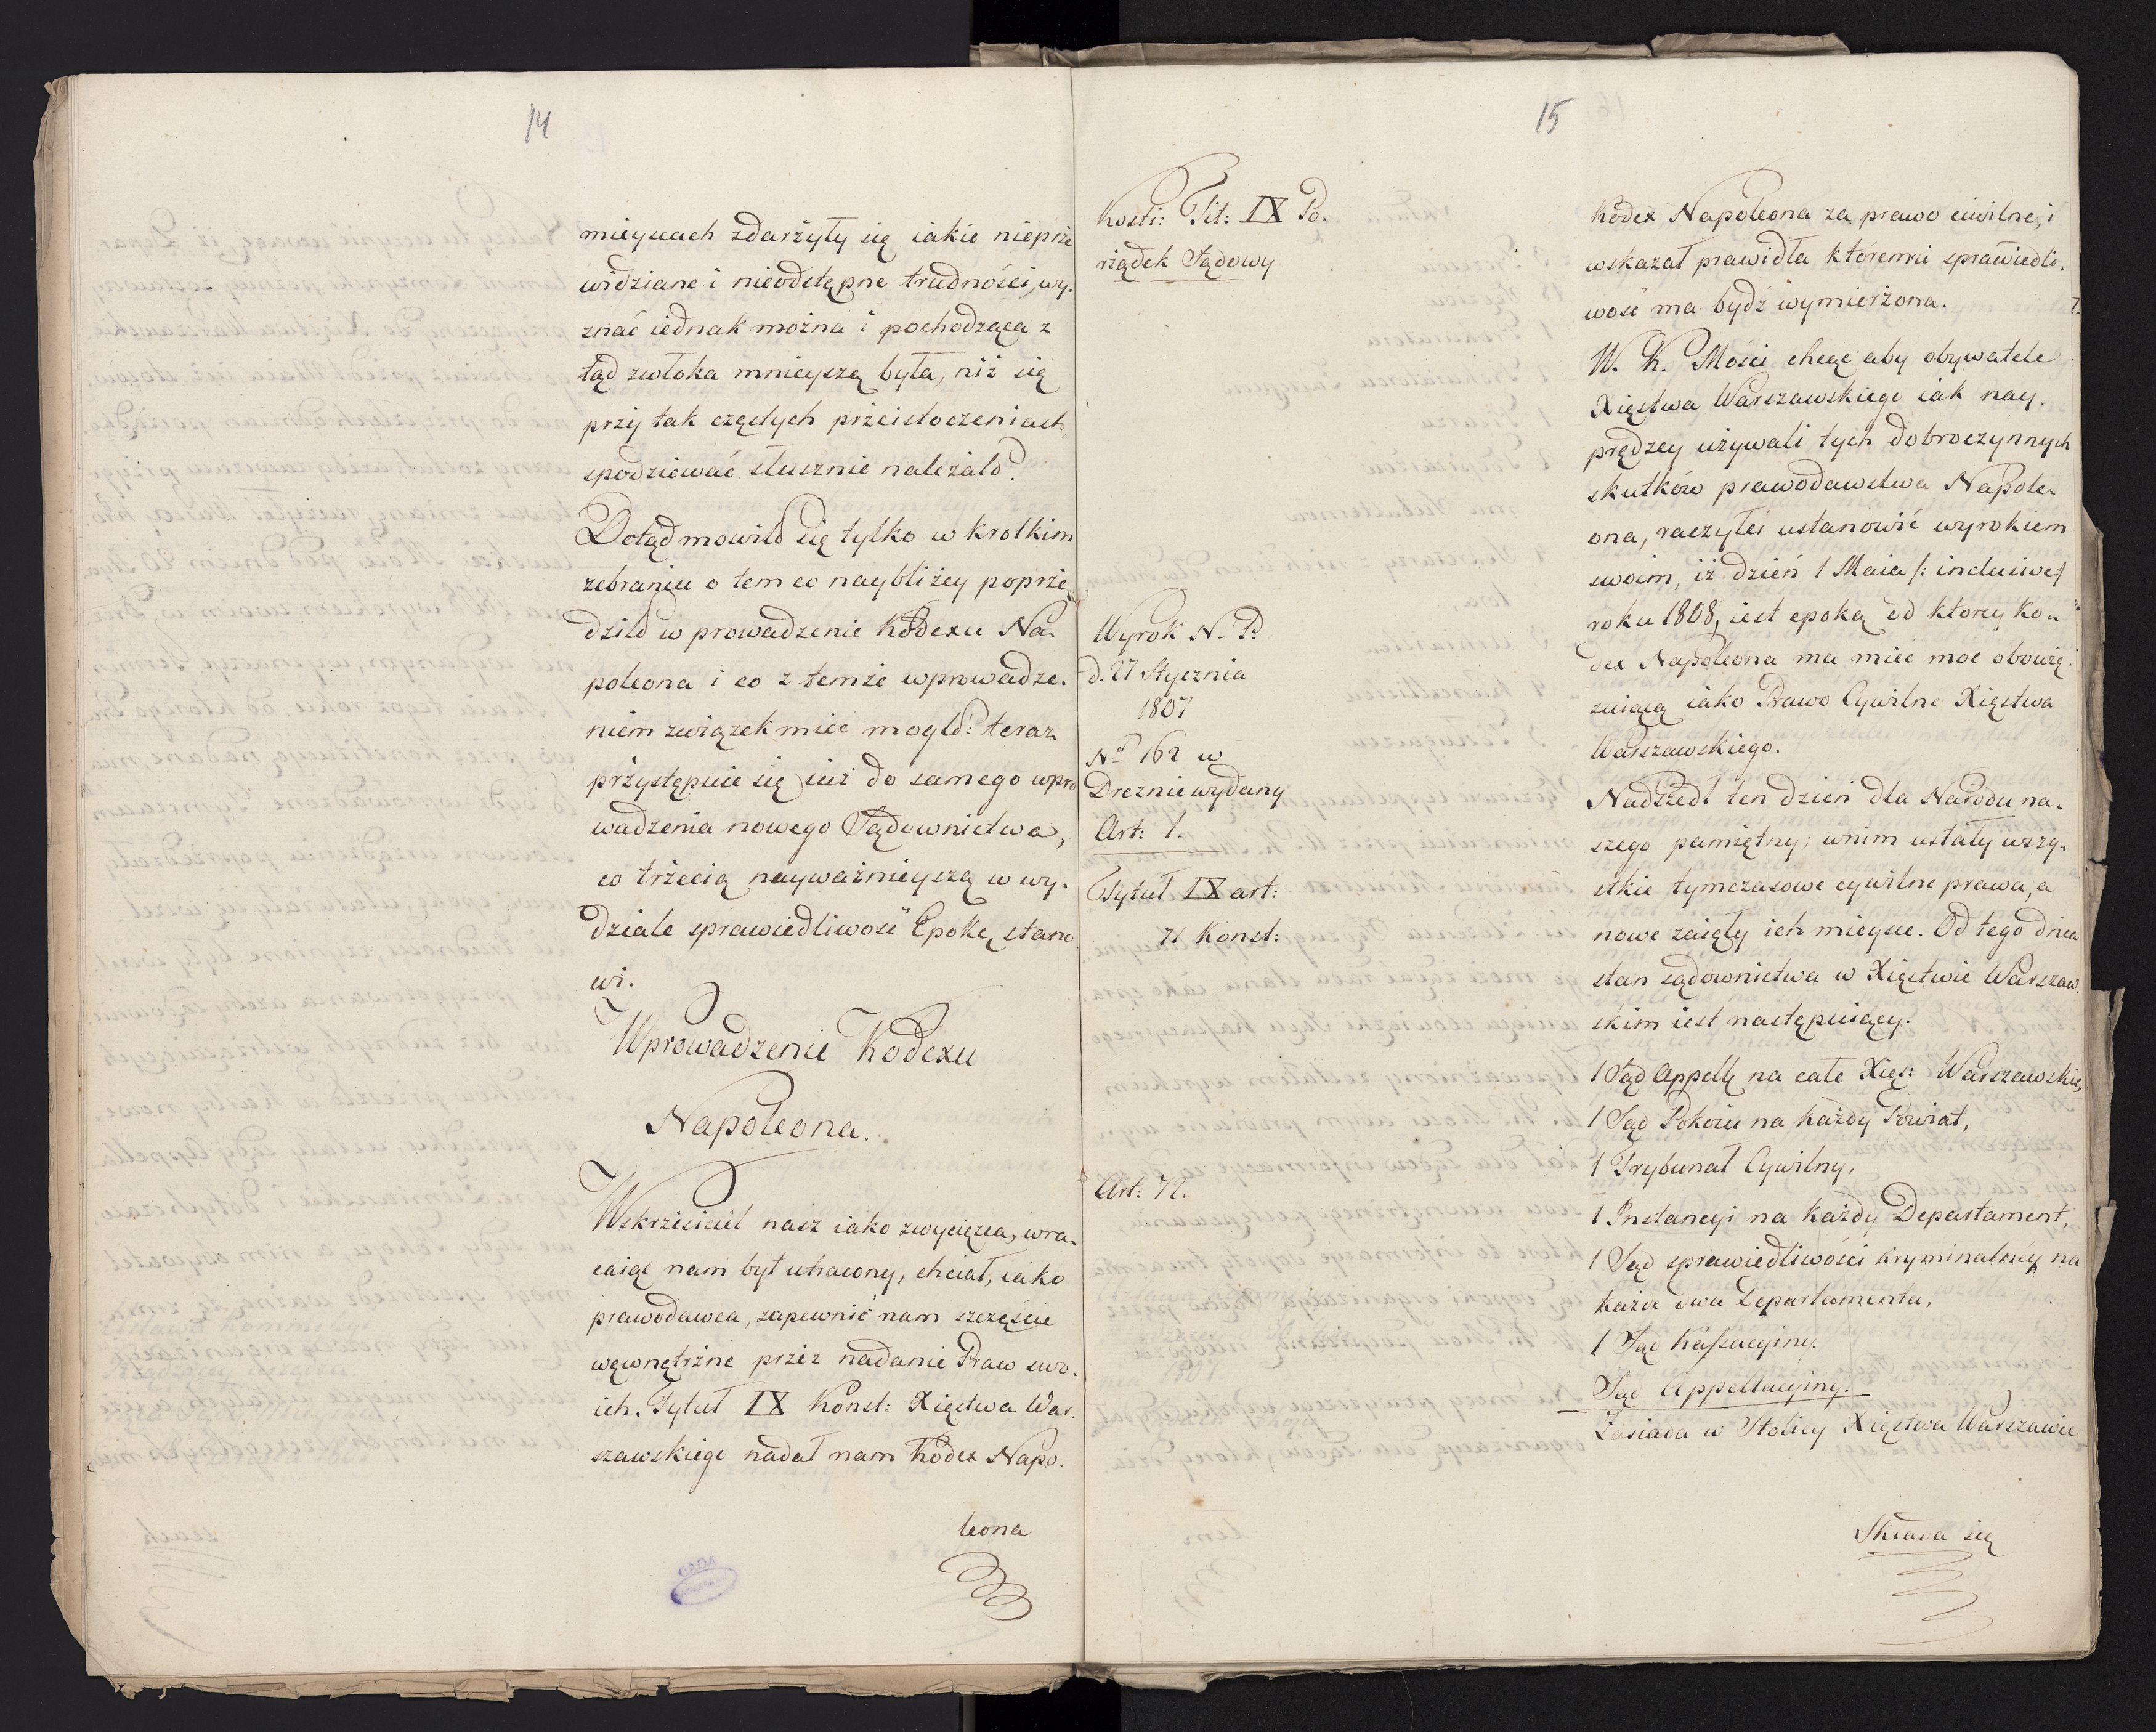 14
mieyscach zdarżyły się iakie nieprże
widziane i nieodstępne trudności, wy.
znać iednak można i pochodząca z
tąd zwłoka mnieyszą była, niż się
przy tak częstych prżeistoczeniach
spodziewać słusznie należało.
Dotąd mowiło się tylko w krotkim
zebraniu o tem co naybliżey poprże
dziło w prowadzenie Kodexu Na.
poleona i co z temże wprowadze.
niem związek mieć mogło: teraz
prżystępuie się iuż do samego wpro
wadzenia nowego Sądownictwa,
co trżecią nayważnieyszą w wy.
dziale sprawiedliwosć Epokę stano
wi.
Wprowadzenie Kodexu
Napoleona.
Wskrżesiciel nasz iako zwycięzca, wra.
caiąc nam byt utracony, chciał, iako
prawodawca, zapewnić nam szczęście
wewnętrżne przez nadanie Praw swo.
ich. Tytuł IX Konst: Xięstwa War.
szawskiego nadał nam Kodex Napo.
leona
15
Kosti: Tit: IX Po.
rżądek Sądowy
Wyrok N. P.
d. 27 Stycznia
1807
No 162 w
Dreznie wydany
Art: 1.
Tytuł IX art:
71 Konst:
Art: 72.
Kodex Napoleona za prawo ciwilne, i
wskazał prawidła któremi sprawiedli.
wosć ma bydź wymierżona.
W. K. Mości chcąc aby obywatele
Xięstwa Warszawskiego iak nay.
prędzey używali tych dobroczynnych
skutków prawodawstwa Napole.
ona, raczyłeś ustanówić wyrokiem
swoim, iż dzień 1 Maia /: inclusive :/
roku 1808, iest epoką od ktorey Ko.
dex Napoleona ma mieć moc obowią.
zuiącą iako Prawo Cywilne Xięstwa
Warszawskiego.
Nadszedł ten dzień dla Narodu na.
szego pamiętny; w nim ustały wszy.
stkie tymczasowe cywilne prawa, a
nowe zaięły ich mieysce. Od tego dnia
stan sądownictwa w Xięstwie Warszaw.
skim iest następuiący.
1 Sąd Appell: na całe Xięs: Warszawskie,
1 Sąd Pokoiu na każdy Powiat,
1 Trybunał Cywilny,
1 Instancyi na każdy Departament,
1 Sąd sprawiedliwości kryminalnéy na
każde dwa Departamenta,
1 Sąd Kassacyiny.
Sąd Appellacyiny.
Zasiada w Stolicy Xięstwa Warszawie
Składa się